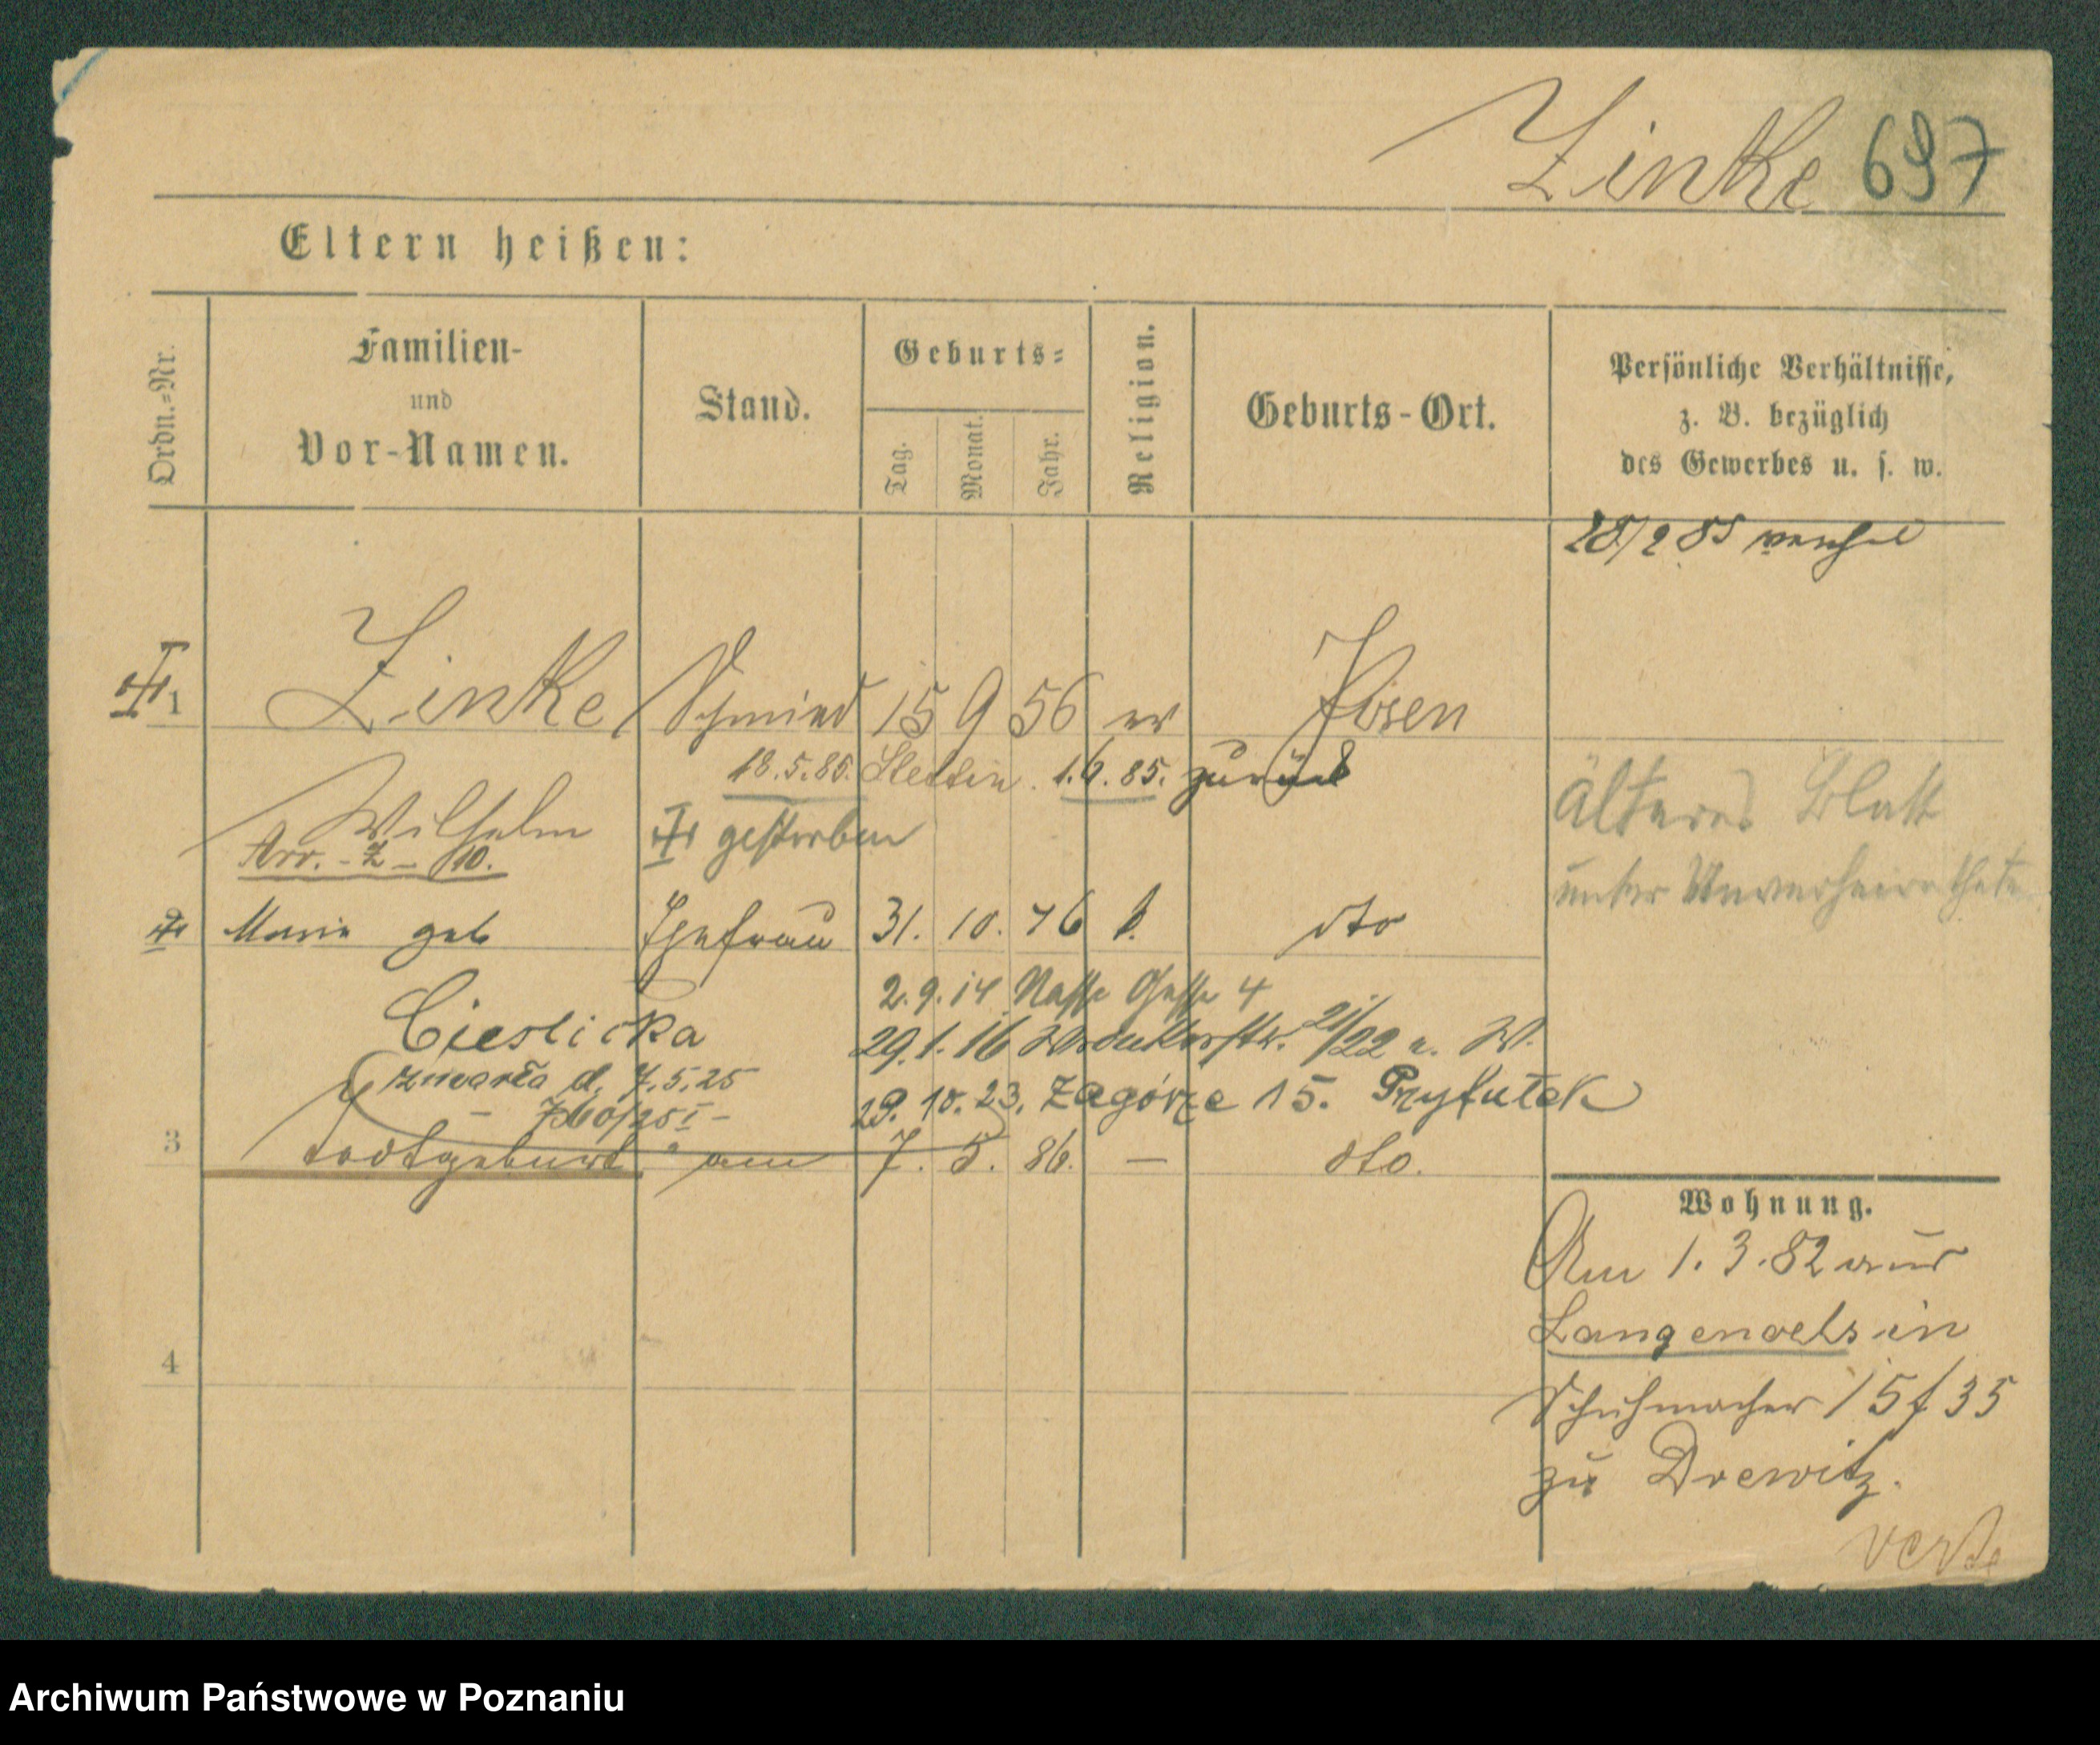 Zinke 697
Eltern heißen:
Ordn.-Nr.
Familien-
und
Vor-Namen.
Stand.
Geburts-
Tag.
Monat.
Jahr.
Religion.
Geburts-Ort.
Persönliche Verhältnisse,
z. B. bezüglich
des Gewerbes u. s. w.
28/2 85
1 Zinke Schmied 15 9 56 ev Posen
18.5.85. Stettin. 1.6.85. zurück
Wilhelm gestorben
Arr. - Z - 10.
Älteres Blatt
unter Unverheirathete
2 Marie geb Ehefrau 31. 10. 76 k. dto
Cieslicka
2.9.14 Nasse Gasse 4
29.1.16 21/22 a. W.
zmarła d. 7.5.25
760/25 I -
29.10.23. Zagórze 15. Przytułek
3 todtgeburt am 7. 5. 86. — dto.
4
Wohnung.
Am 1.3.82 aus
Langenoels in
Schuhmacher 15 f 35
zu Drewitz.
verte
Archiwum Państwowe w Poznaniu